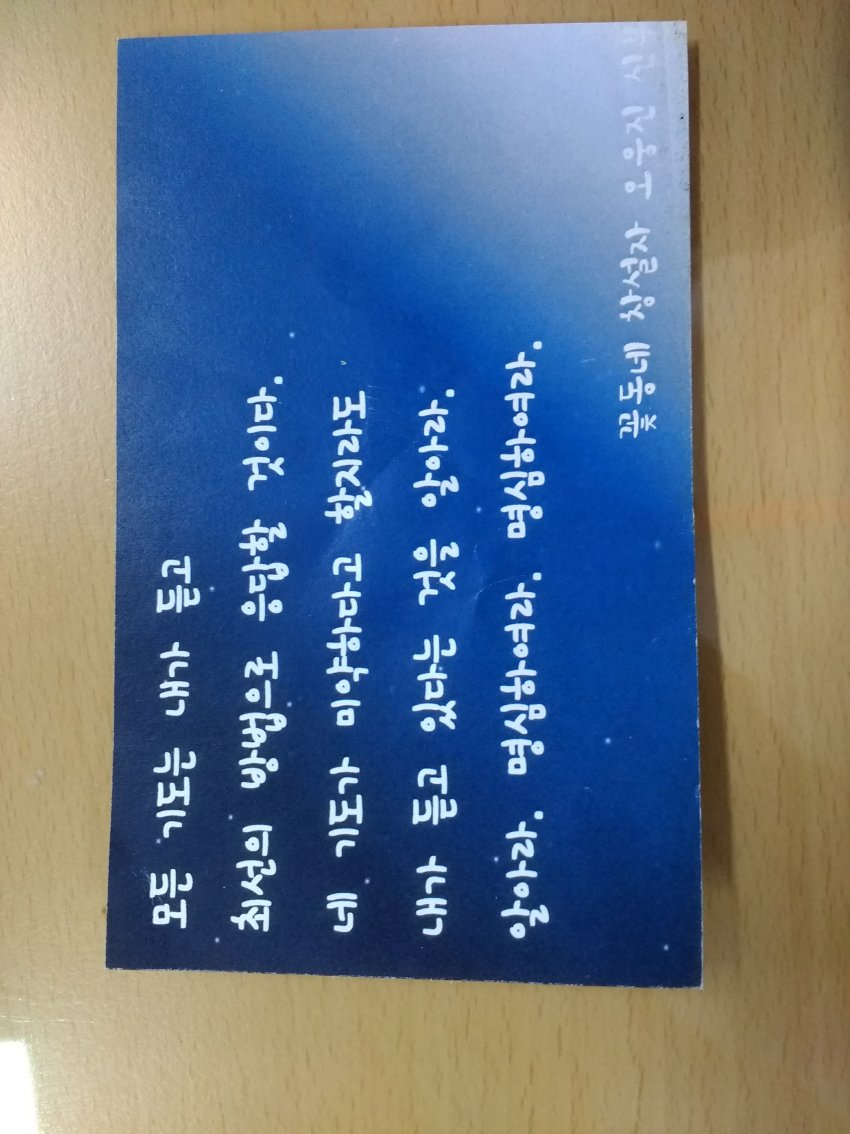 모든 기도는 내가 듣고
최선의 방법으로 응답할 것이다.
네 기도가 미약하다고 할지라도
내가 듣고 있다는 것을 알아라.
알아라. 명심하여라. 명심하여라.
꽃동네 창설자 오웅진 신부